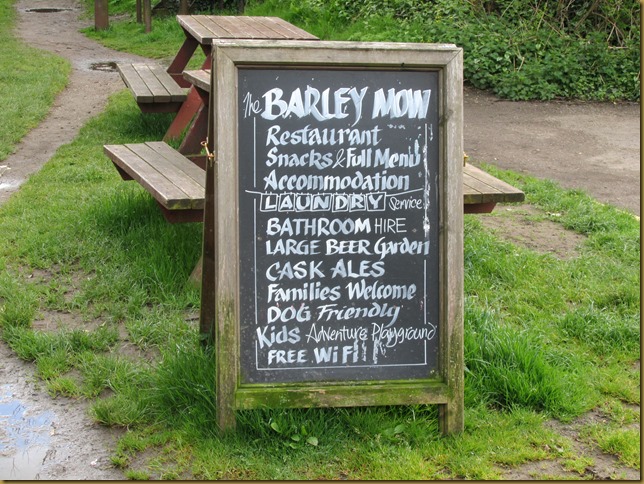 The BARLEY MOW
Restaurant
Snacks & Full Menu
Accommodation
LAUNDRY Service
BATHROOM HIRE
LARGE BEER Garden
CASK ALES
Families Welcome
DOG Friendly
Kids Adventure Playground
FREE WiFi